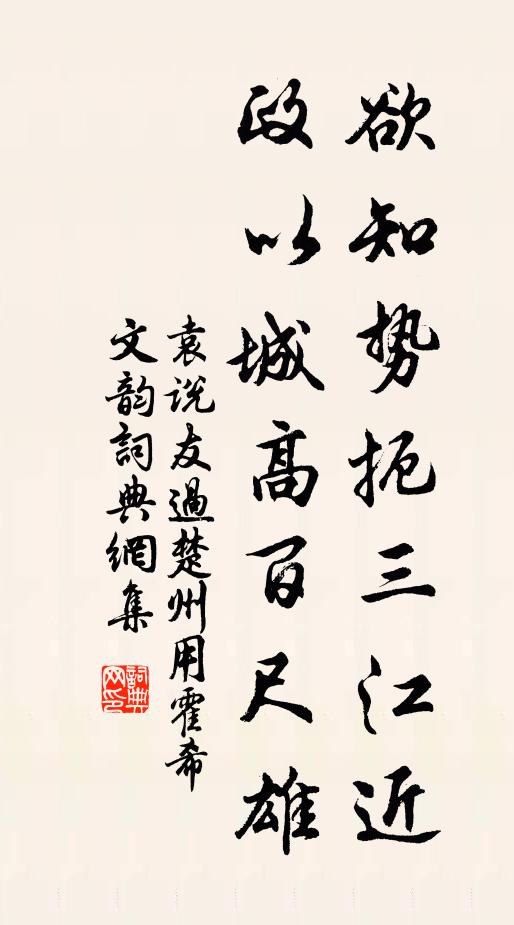 欲知势扼三江近
政以城高百尺雄
袁说友過楚州用霍希
文韵詞典網集
詞典网印